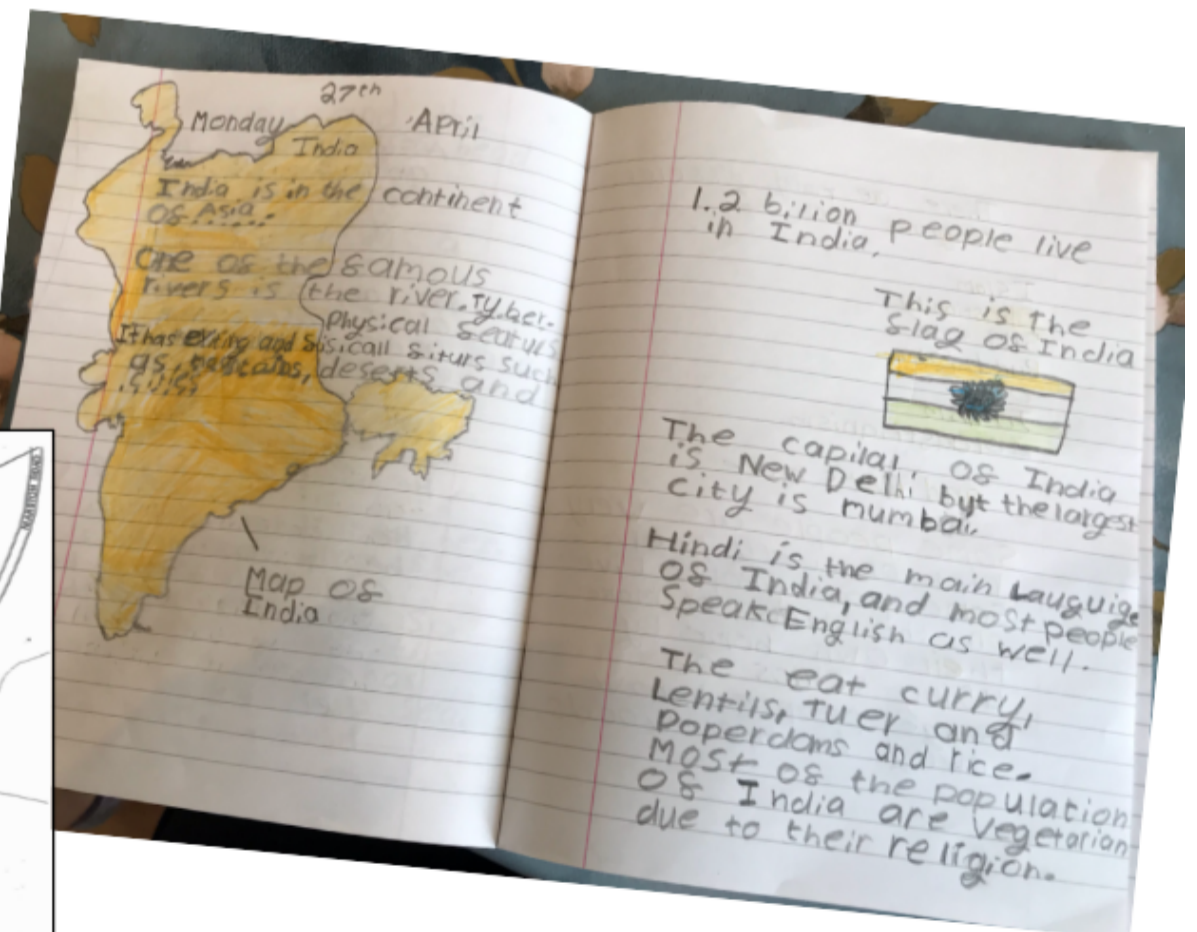 27th
Monday April
India
India is in the continent
of Asia
One of the famous
rivers is the river. Tyber.
Physical featurs
It has exiting and fisicall fiturs such
as, deserts and
Map of
India
1.2 bilion people live
in India.
This is the
flag of India
The capilal. of India
is New Delhi byt the largest
city is mumbai.
Hindi is the main Lauguige
of India, and most people
Speak English as well.
The eat curry,
Lentils, Tuer and
Poperdoms and rice.
Most of the population
of India are Vegetarian
due to their religion.